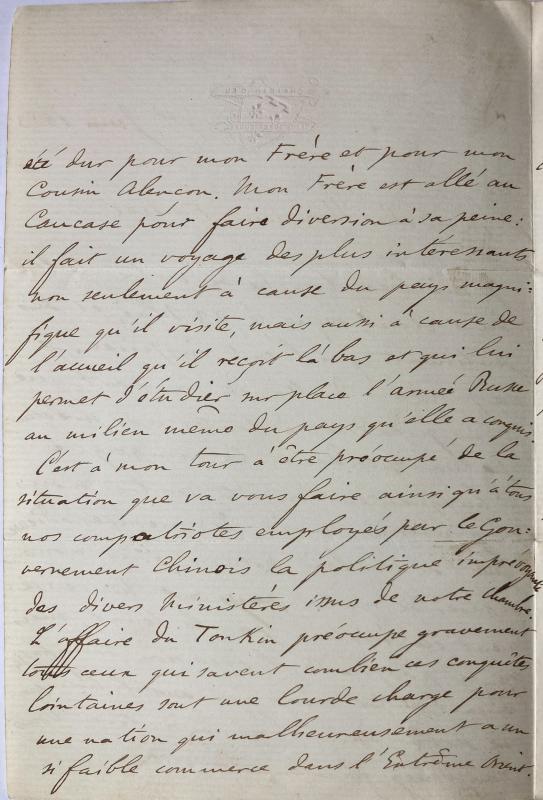 été dur pour mon Frère et pour mon
Cousin Alençon. Mon Frère est allé au
Caucase pour faire diversion à sa peine:
il fait un voyage des plus intéressants
non seulement à cause du pays magni=
fique qu'il visite, mais aussi à cause de
l'accueil qu'il reçoit là bas et qui lui
permet d'étudier sur place l'armée Russe
au milieu même du pays qu'elle a conquis.
C'est à mon tour à être préoccupé de la
situation que va vous faire ainsi qu'à tous
nos compatriotes employés par le Gou=
vernement Chinois la politique imprévoyante
des divers Ministères issus de notre Chambre.
L'affaire du Tonkin préoccupe gravement
tous ceux qui savent combien ces conquêtes
lointaines sont une lourde charge pour
une nation qui malheureusement a un
si faible commerce dans l'Extrême Orient.